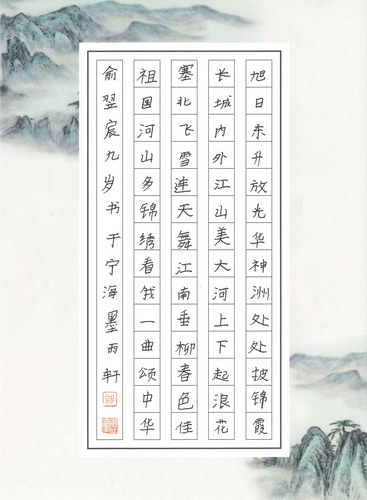 旭日东升放光华神洲处处披锦霞
长城内外江山美大河上下起浪花
塞北飞雪连天舞江南垂柳春色佳
祖国河山多锦绣看我一曲颂中华
俞翌宸九岁书于宁海墨雨轩